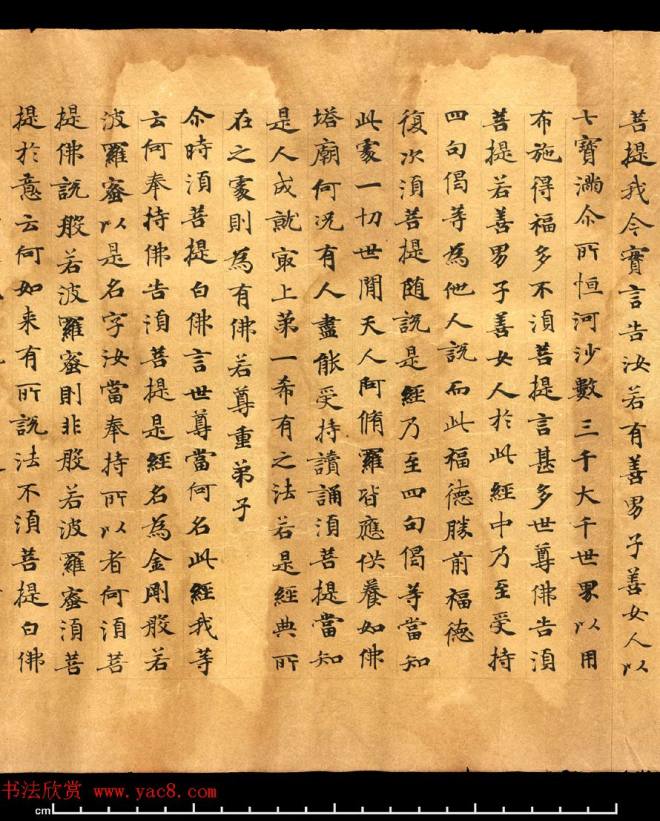 菩提我今實言告汝若有善男子善女人以
七寶滿尒所恒河沙數三千大千世界以用
布施得福多不須菩提言甚多世尊佛告須
菩提若善男子善女人於此經中乃至受持
四句偈等為他人說而此福德勝前福德
復次須菩提随說是經乃至四句偈等當知
此處一切世間天人阿脩羅皆應供養如佛
塔廟何況有人盡能受持讀誦須菩提當知
是人成就冣上苐一希有之法若是經典所
在之處則為有佛若尊重弟子
尒時須菩提白佛言世尊當何名此經我等
云何奉持佛告須菩提是經名為金剛般若
波羅蜜以是名字汝當奉持所以者何須菩
提佛說般若波羅蜜則非般若波羅蜜須菩
提於意云何如来有所說法不須菩提白佛
书法欣赏 www.yac8.com
cm